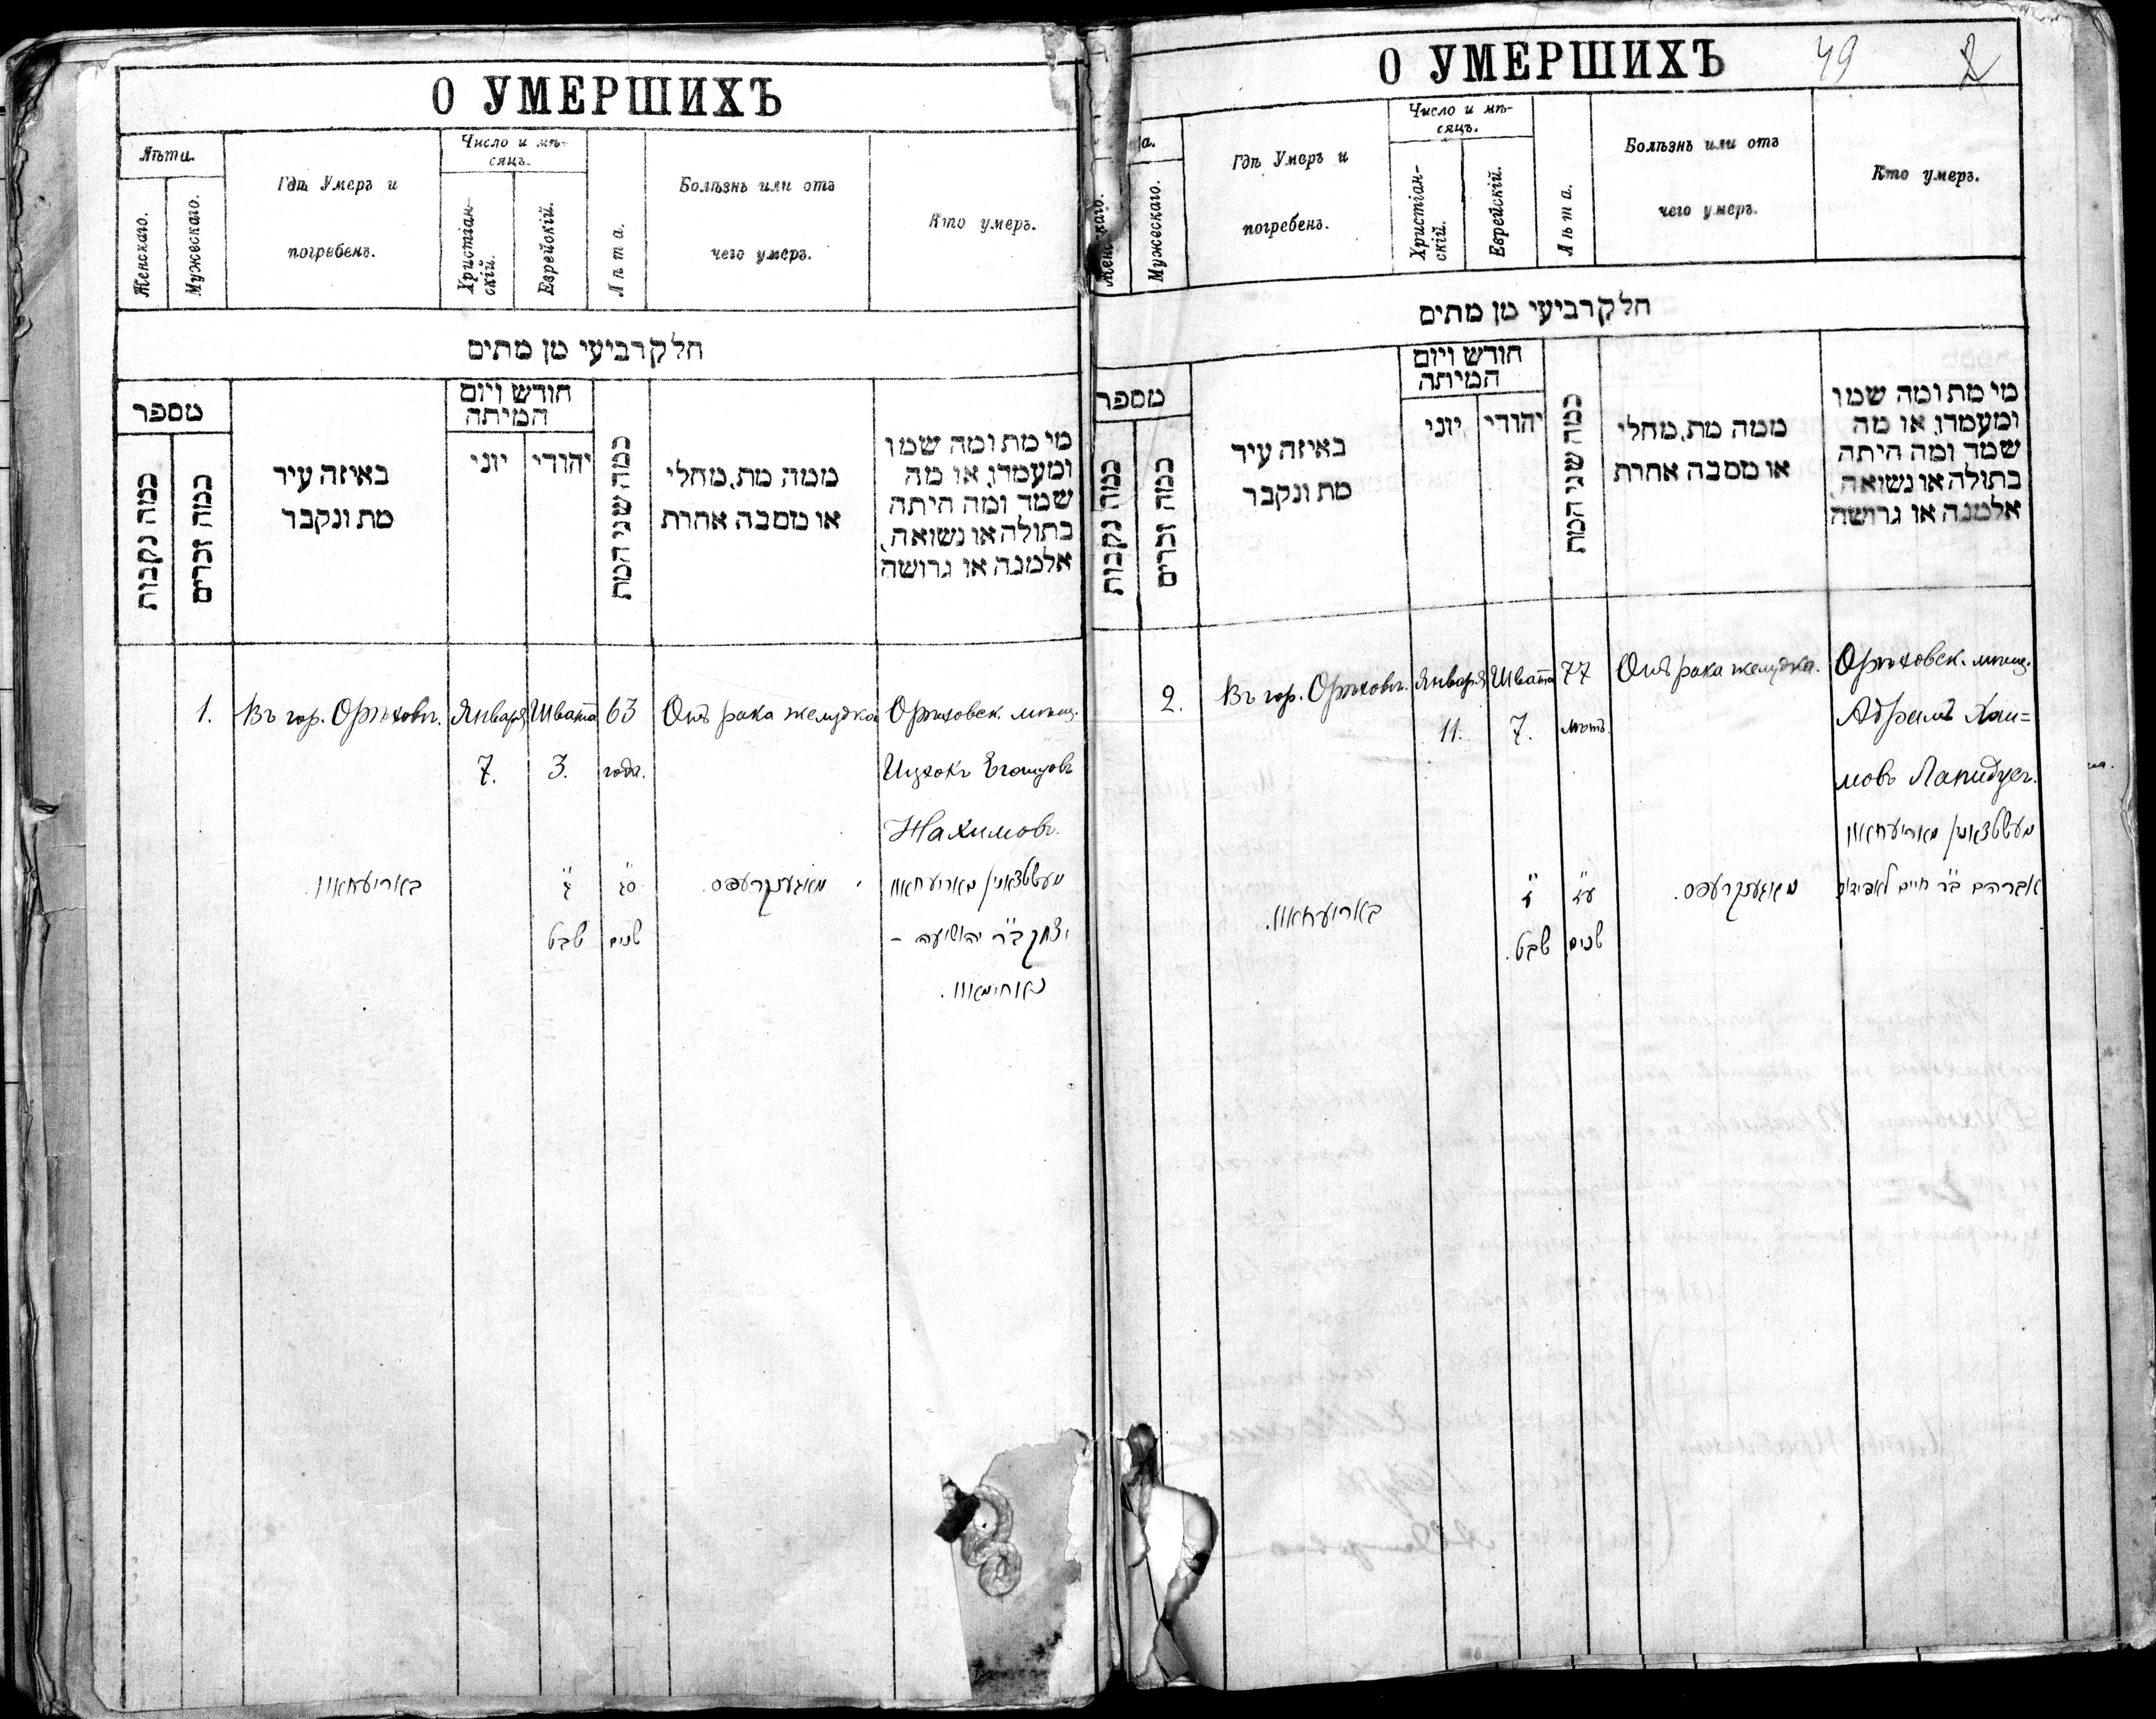 О УМЕРШИХЪ
Лѣта.
Женскаго.
Мужескаго.
Гдѣ Умеръ и
погребенъ.
Число и мѣ-
сяцъ.
Христіан-
скій.
Еврейскій.
Лѣта.
Болѣзнь или отъ
чего умеръ.
Кто умеръ.
חלק רביעי מן מתים
מספר
כמה נקבות
כמה זכרים
באיזה עיר
מת ונקבר
חודש ויום
המיתה
יוני
יהודי
כמה שני המת
ממה מת, מחלי
או מסבה אחרת
מי מת ומה שמו
ומעמדו, או מה
שמה ומה היתה
בתולה או נשואה,
אלמנה או גרושה
1. Въ гор. Орѣховѣ. Января Швата 63 Отъ рака желудка Орѣховск. мѣщ.
7. 3. года. Ицхокъ
Нахимовъ.
באריעחאוו ג סג מאגענקרעפס. מעשטשאנין מאריעחאוו
שבט שנים יצחק ב"ר יהושיעה -
נאחימאוו.
О УМЕРШИХЪ 49 2
а.
Женскаго.
Мужескаго.
Гдѣ Умеръ и
погребенъ.
Число и мѣ-
сяцъ.
Христіан-
скій.
Еврейскій.
Лѣта.
Болѣзнь или отъ
чего умеръ.
Кто умеръ.
חלק רביעי מן מתים
מספר
כמה נקבות
כמה זכרים
באיזה עיר
מת ונקבר
חודש ויום
המיתה
יוני
יהודי
כמה שני המת
ממה מת, מחלי
או מסבה אחרת
מי מת ומה שמו
ומעמדו, או מה
שמה ומה היתה
בתולה או נשואה,
אלמנה או גרושה
2. Въ гор. Орѣховѣ. Января Швата 77 Отъ рака желудка. Орѣховск. мѣщ.
11. 7. лѣтъ. Абрамъ Хаи=
мовъ Лапидусъ.
מעשטשאנין מאריעחאוו
באריעחאוו. ז עז מאגענקרעפס. אברהם ב"ר חיים לאפידוס
שבט. שנים